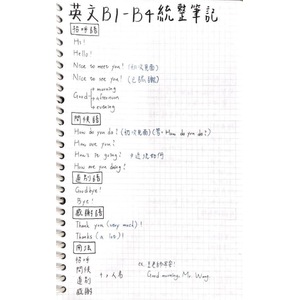 英文B1-B4統整筆記
招呼語
Hi!
Hello!
Nice to meet you! (初次見面)
Nice to see you! (已認識)
Good + morning
afternoon
evening
問候語
How do you do? (初次見面) (答:How do you do?)
How are you?
How's it going? #近況如何
How are you doing?
道別語
Goodbye!
Bye!
感謝語
Thank you (very much)!
Thanks (a lot)!
用法
招呼
問候
道別
感謝
+ 人名
ex.
Good morning, Mr. Wang.